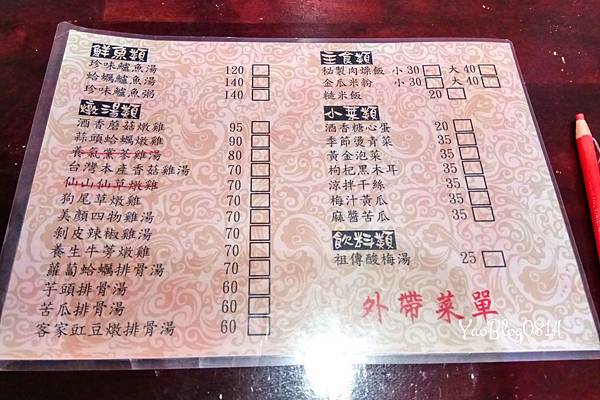 鮮魚類
珍味鱸魚湯 120
蛤蠣鱸魚湯 140
珍味鱸魚粥 140
燉湯類
酒香蘑菇燉雞 95
蒜頭蛤蠣燉雞 90
養氣黨蔘雞湯 80
台灣本產香菇雞湯 70
仙山仙草燉雞 70
狗尾草燉雞 70
美顏四物雞湯 70
剝皮辣椒雞湯 70
養生牛蒡燉雞 70
蘿蔔蛤蠣排骨湯 70
芋頭排骨湯 60
苦瓜排骨湯 60
客家豇豆燉排骨湯 60
主食類
秘製肉燥飯 小 30 大 40
金瓜米粉 小 30 大 40
糙米飯 20
小菜類
酒香糖心蛋 20
季節燙青菜 35
黃金泡菜 35
枸杞黑木耳 35
涼拌干絲 35
梅汁黃瓜 35
麻醬苦瓜 35
飲料類
祖傳酸梅湯 25
外帶菜單
YaoBlog0814